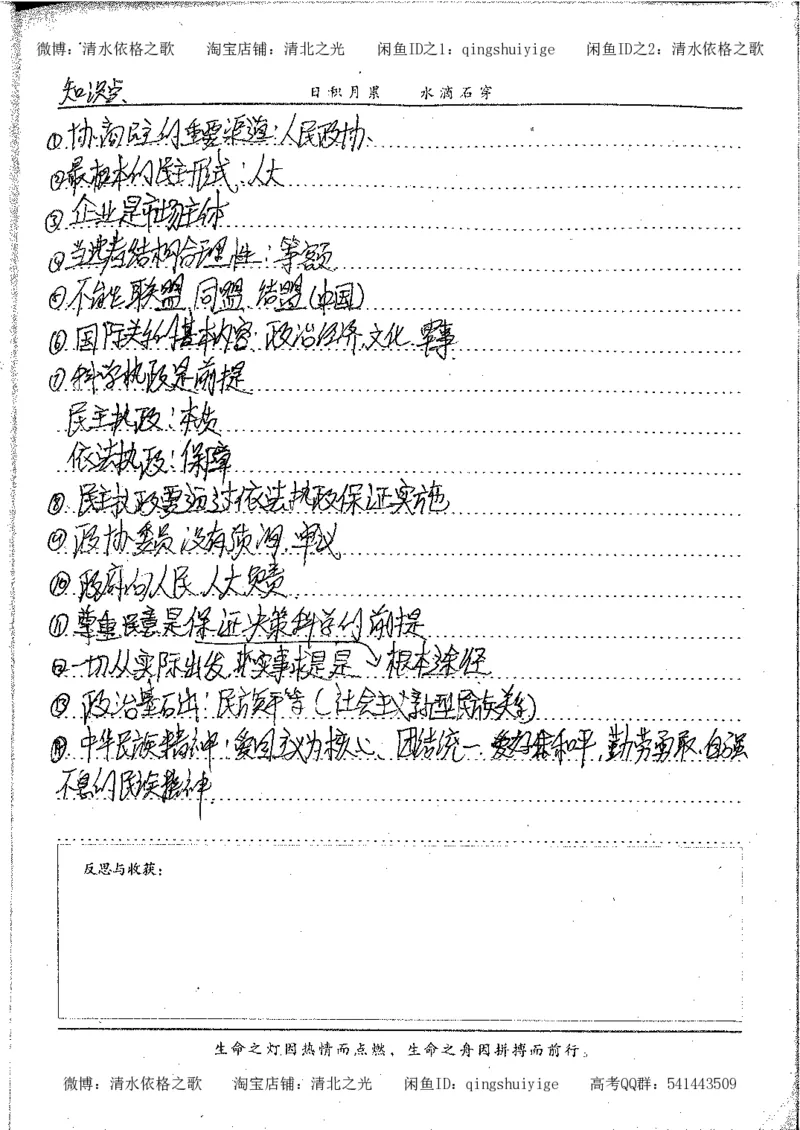 微博：清水依格之歌 淘宝店铺：清北之光 闲鱼ID之1：qingshuiyige 闲鱼ID之2：清水依格之歌
知识点 日积月累 水滴石穿
①协商民主的重要渠道：人民政协、
②最根本的民主形式：人大
③企业是市场主体
④当选者结构合理性：等额
⑤不能是联盟、同盟、结盟(中国)
⑥国际关系的基本内容：政治经济、文化、军事
⑦科学执政是前提
民主执政：本质
依法执政：保障
⑧民主执政要通过依法执政保证实施
⑨政协委员没有质询、审议
⑩政府向人民、人大负责
⑪尊重民意是保证决策科学的前提
⑫一切从实际出发，求实事求是→根本途径
⑬政治基石出：民族平等(社会主义新型民族关系)
⑭中华民族精神：爱国主义为核心、团结统一、爱好和平，勤劳勇敢、自强
不息的民族精神
反思与收获：
生命之灯因热情而点燃，生命之舟因拼搏而前行。
微博：清水依格之歌 淘宝店铺：清北之光 闲鱼ID：qingshuiyige 高考QQ群：541443509